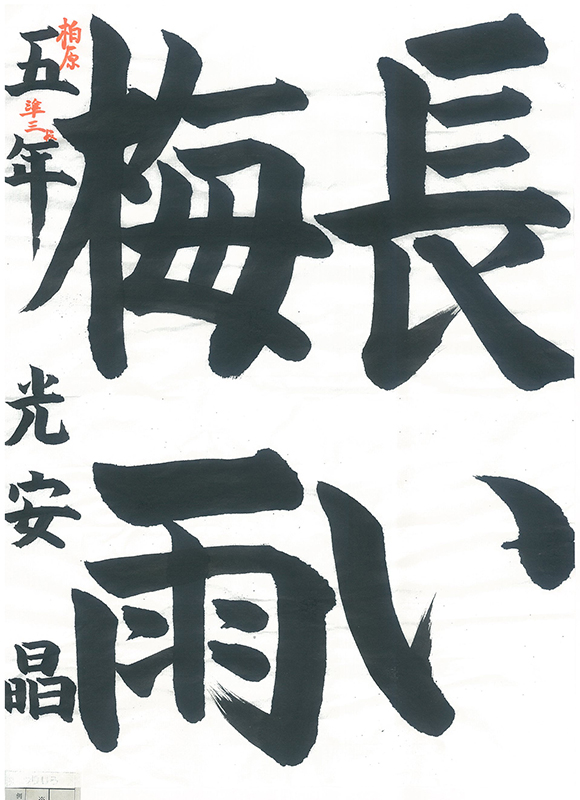 長い
梅雨
五年 光安 晶
柏原
準三